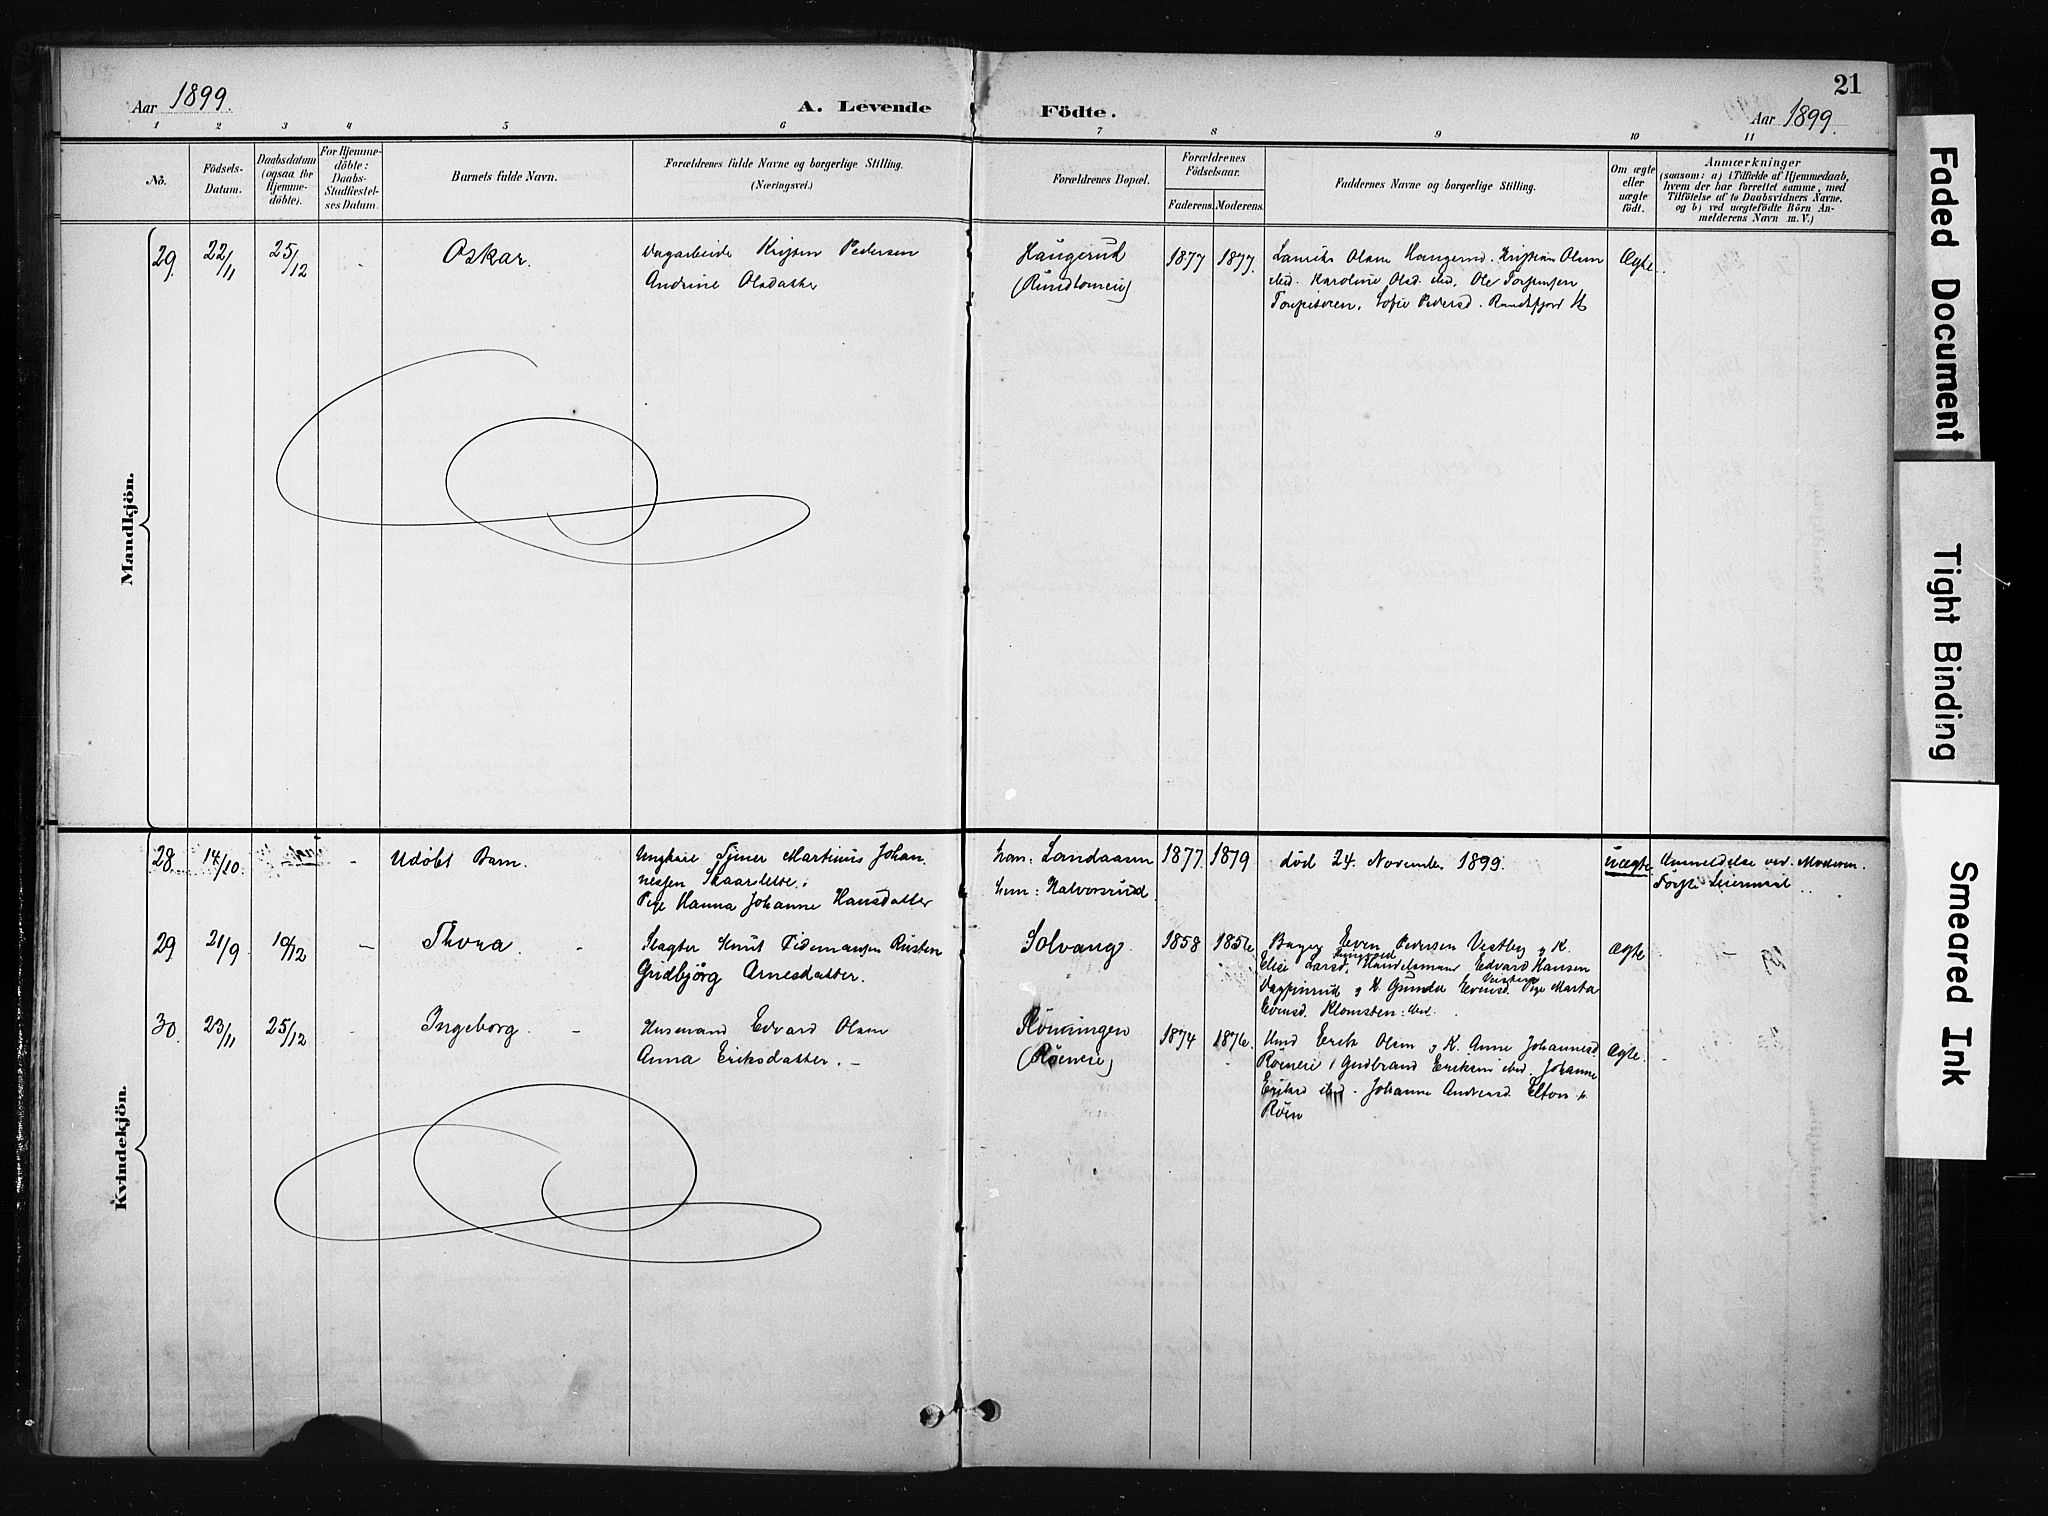 21
Aar 1899.
A. Levende Födte.
Aar 1899.
1 2 3 4 5 6 7 8 9 10 11
No.
Födsels-
Datum.
Daabsdatum
(ogsaa for
Hjemme-
döbte).
For Hjemme-
döbte:
Daabs-
Stadfæstel-
ses Datum.
Barnets fulde Navn.
Forældrenes fulde Navne og borgerlige Stilling.
(Næringsvei.)
Forældrenes Bopæl.
Forældrenes
Födselsaar.
Faderens. Moderens.
Faddernes Navne og borgerlige Stilling.
Om ægte
eller
uægte
födt.
Anmærkninger
(saasom: a) i Tilfælde af Hjemmedaab,
hvem der har forrettet samme, med
Tilföielse af to Daabsvidners Navne,
og b) ved uægtefödte Börn An-
melderens Navn m. V.)
Mandkjön.
29. 22/11 25/12 Oskar. Pedersen
Andrine Olsdatter
Haugerud
1877 1877.
Olsen Haugerud. Kristian Olsen
ibd. Karoline Olsd. ibd, Ole
Sofie Pedersd. Randsfjord St
Ægte
Kvindekjön.
28 14/10 Udöbt Barn.
Ungkarl Tjener Martinus Johan-
nessen
Pige Hanna Johanne Hansdatter
ham: Landaasen
hem: Halvorsrud.
1877. 1879
död 24. November 1899.
uægte
Anmeldelse ved Moderen.
Leiermaal
29 21/9 10/12 Thora.
Slagter Knut Tidemansen Rusten
Gudbjörg Arnesdatter.
Solvang.
1858 1856
Even Pedersen Vestby og K.
Elise Larsd. Handelsmand Edvard Hansen
og K. Gunda Evensd. Pige Marta
Evensd. Klomsten ibd.
ægte
30. 23/11 25/12 Ingeborg
Husmand Edvard Olsen
Anna Eriksdatter.
Rönningen
(Röeneie)
1874 1876.
Hmd Erik Olsen og K. Anne Johannesd
Röeneie, Gudbrand Eriksen ibd. Johanne
Eriksd ibd. Johanne Andersd. Elton
Röen
Ægte.
Faded Document
Tight Binding
Smeared Ink